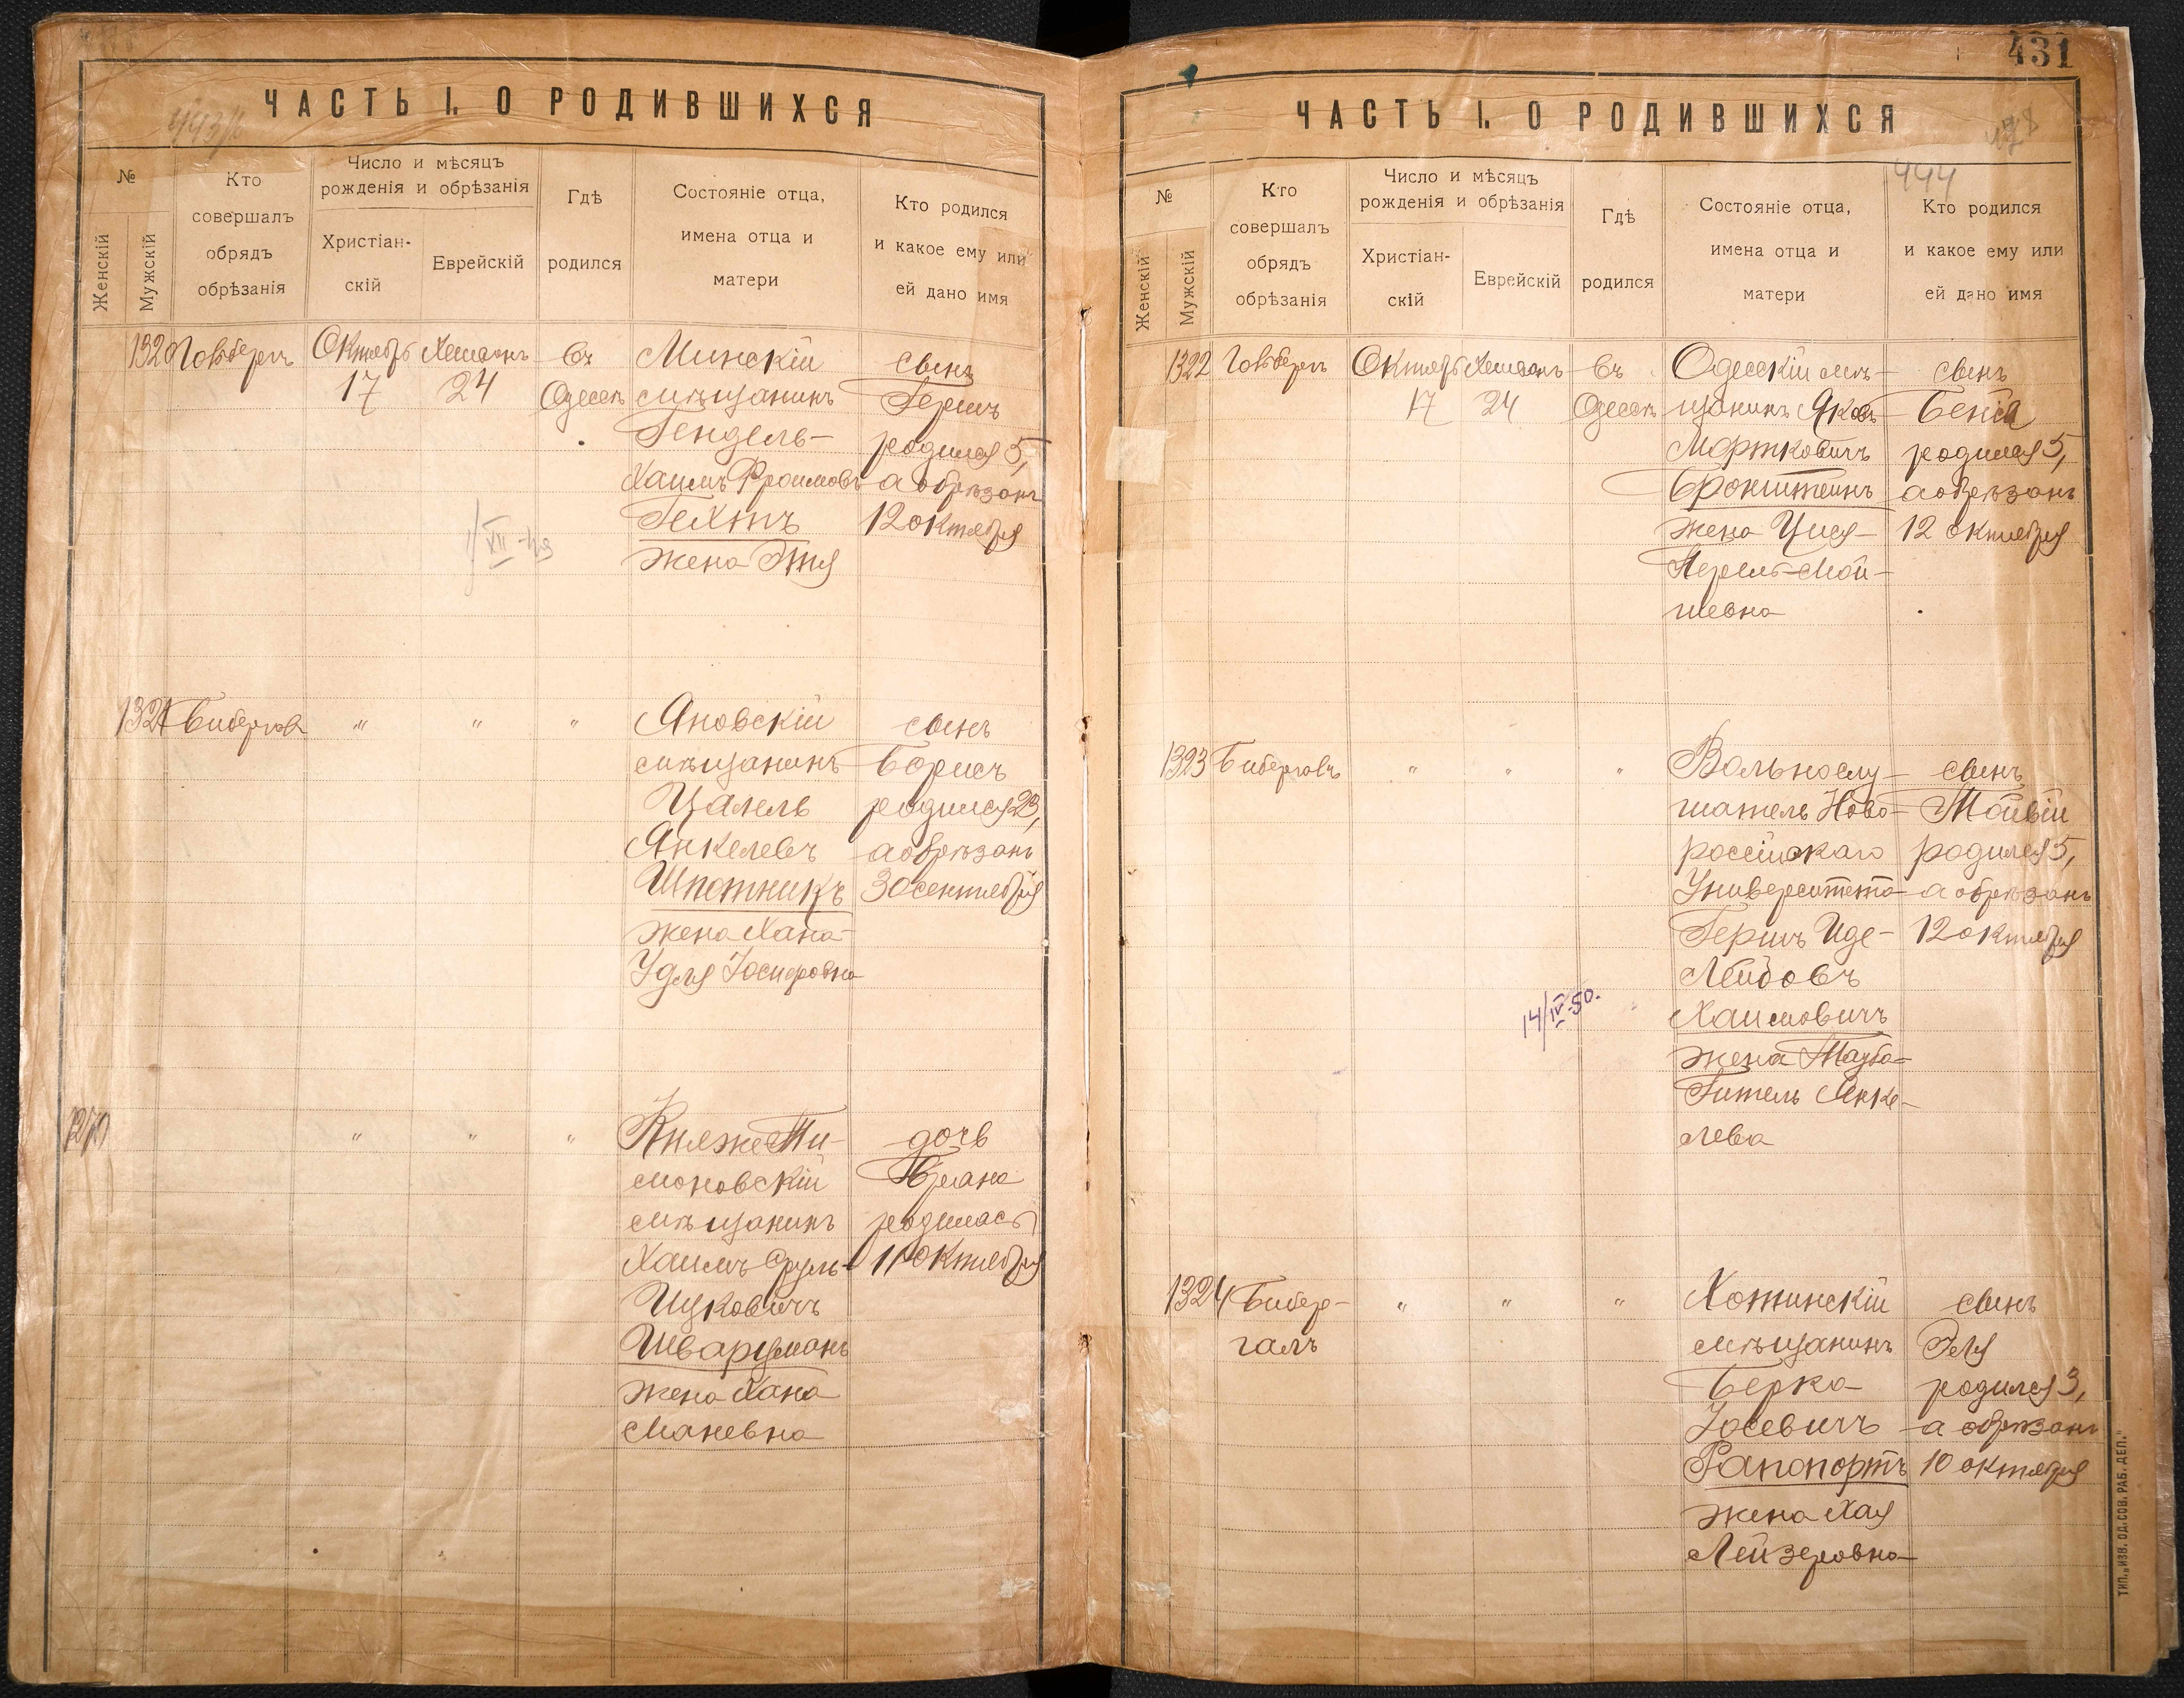 443/1
ЧАСТЬ I. О РОДИВШИХСЯ
№
Женскій
Мужскій
Кто
совершалъ
обрядъ
обрѣзанія
Число и мѣсяцъ
рожденія и обрѣзанія
Христіан-
скій
Еврейскій
Гдѣ
родился
Состояніе отца,
имена отца и
матери
Кто родился
и какое ему или
ей дано имя
1320
Гольдбергъ
Октябрь
17
Хешванъ
24
въ
Одессѣ
Минскій
мѣщанинъ
Гендель-
Хаимъ Фроимовъ
Гехтъ
жена Этя
сынъ
Гершъ
родился 5,
а обрѣзанъ
12 октября
1/XII-43
1321
"
"
"
Яновскій
мѣщанинъ
Цалель
Янкелевъ
Шпотникъ
жена Хана-
Удля Іосифовна
сынъ
Борисъ
родился 23,
а обрѣзанъ
30 сентября
"
"
"
Княже Ти-
моновскій
мѣщанинъ
Хаимъ Сруль-
Ицковичъ
Шварцманъ
жена Хана
Маневна
дочь
родилась
11 октября
431
478
444
ЧАСТЬ I. О РОДИВШИХСЯ
№
Женскій
Мужскій
Кто
совершалъ
обрядъ
обрѣзанія
Число и мѣсяцъ
рожденія и обрѣзанія
Христіан-
скій
Еврейскій
Гдѣ
родился
Состояніе отца,
имена отца и
матери
Кто родился
и какое ему или
ей дано имя
1322
Гольдбергъ
Октябрь
17
Хешванъ
24
въ
Одессѣ
Одесскій мѣ-
щанинъ Яковъ
Мортковичъ
Бронштейнъ
жена Цися-
Перель Мой-
шевна
сынъ
Бенціа
родился 5,
а обрѣзанъ
12 октября
1323
Бибергалъ
"
"
"
Вольнослу-
шатель Ново-
россійскаго
Университета
Гершъ Иде-
Лейбовъ
Хаимовичъ
жена Тауба-
Гитель Янке-
лева
сынъ
Товій
родился 5,
а обрѣзанъ
12 октября
14/IV-50.
1324
Бибер-
галъ
"
"
"
Хотинскій
мѣщанинъ
Берко
Іосевичъ
Рапопортъ
жена Хая
Лейзеровна
сынъ
Эля
родился 3,
а обрѣзанъ
10 октября
ТИП. „ИЗВ. ОД. СОВ. РАБ. ДЕП."